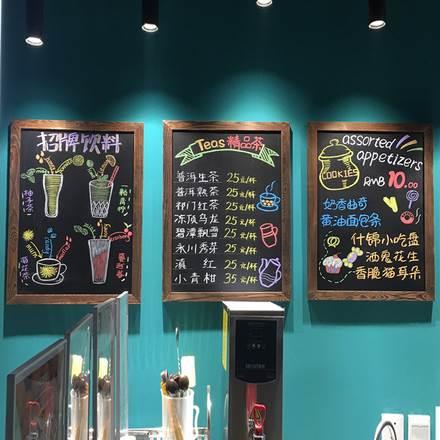 招牌饮料
柚子茶
菊花茶
Teas 精品茶
普洱生茶 25元/杯
普洱熟茶 25元/杯
祁门红茶 25元/杯
冻顶乌龙 25元/杯
碧潭飘雪 25元/杯
永川秀芽 25元/杯
滇红 25元/杯
小青柑 35元/杯
assorted
appetizers
COOKIES
RMB 10.00
奶香曲奇
黄油面包条
什锦小吃盘
酒鬼花生
香脆猫耳朵